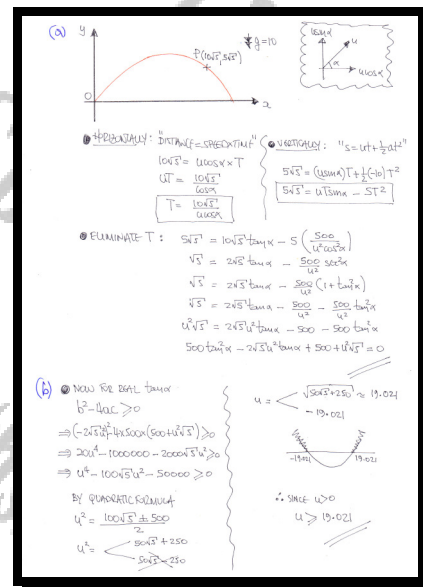 (a)
y
P(10√5, 5√5)
g=10
usinα
u
α
ucosα
O
x
HORIZONTALLY: "DISTANCE=SPEED×TIME"
10√5 = ucosα × T
uT = 10√5/cosα
T = 10√5/ucosα
VERTICALLY: "s=ut+½at²"
5√5 = (usinα)T+½(-10)T²
5√5 = uTsinα - 5T²
ELIMINATE T: 5√5 = 10√5 tanα - 5(500/u²cos²α)
√5 = 2√5 tanα - 500/u² sec²α
√5 = 2√5 tanα - 500/u² (1+tan²α)
√5 = 2√5 tanα - 500/u² - 500/u² tan²α
u²√5 = 2√5 u² tanα - 500 - 500 tan²α
500 tan²α - 2√5 u² tanα + 500 + u²√5 = 0
(b) NOW FOR REAL tanα
b²-4ac ≥ 0
⇒ (-2√5u²)²-4×500×(500+u²√5) ≥ 0
⇒ 20u⁴-1000000-2000√5u² ≥ 0
⇒ u⁴-100√5u²-50000 ≥ 0
BY QUADRATIC FORMULA
u² = 100√5 ± 500/2
u² = 50√5+250
50√5-250
u = √50√5+250 ≈ 19.021
-19.021
-19.021
19.021
∴ SINCE u>0
u ≥ 19.021